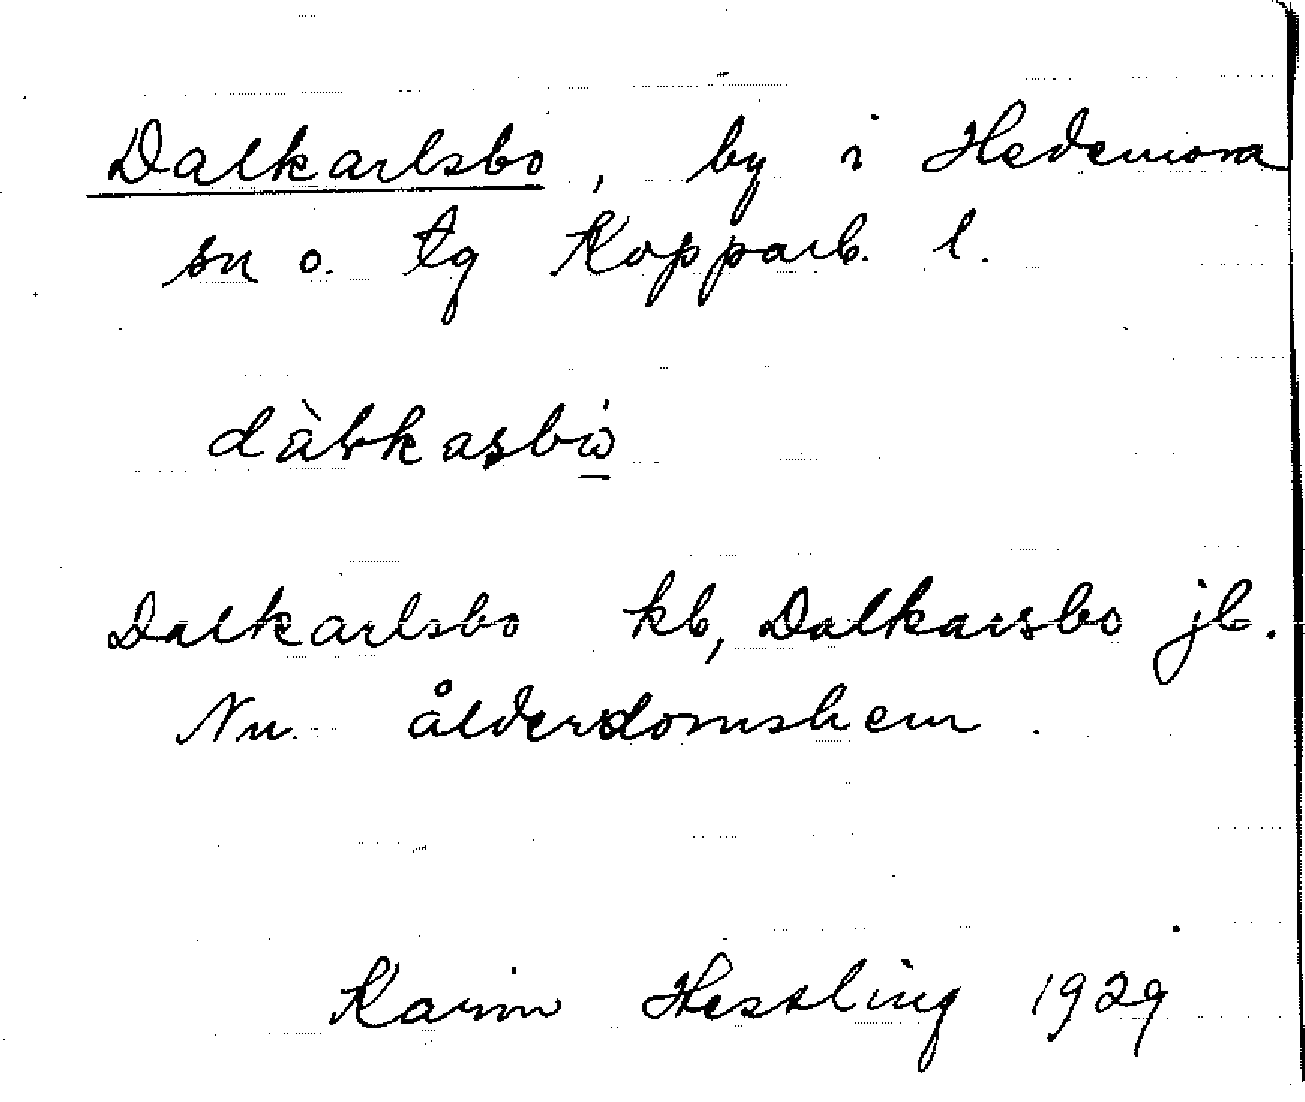 Dalkarlsbo, by i Hedemora
sn o. tg Kopparb. l.
dàłkasbω̇
Dalkarlsbo kb, Dalkarsbo jb.
Nu ålderdomshem.
Karin Hessling 1929